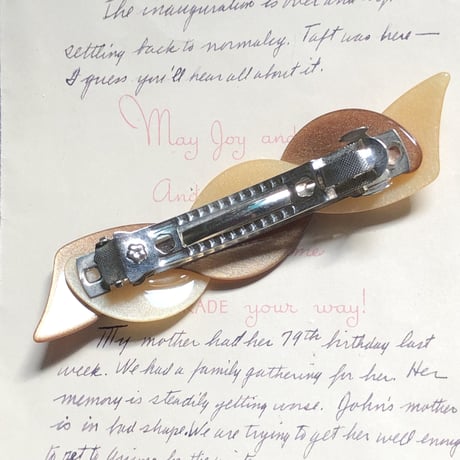 The inauguration is over and
settling back to normalcy. Taft was here—
I guess you'll hear all about it.
May Joy and
And
me
RADE your way!
My mother had her 79th birthday last
week. We had a family gathering for her. Her
memory is steadily getting worse. John's mother
is in bad shape. We are trying to get her well enough
to get to